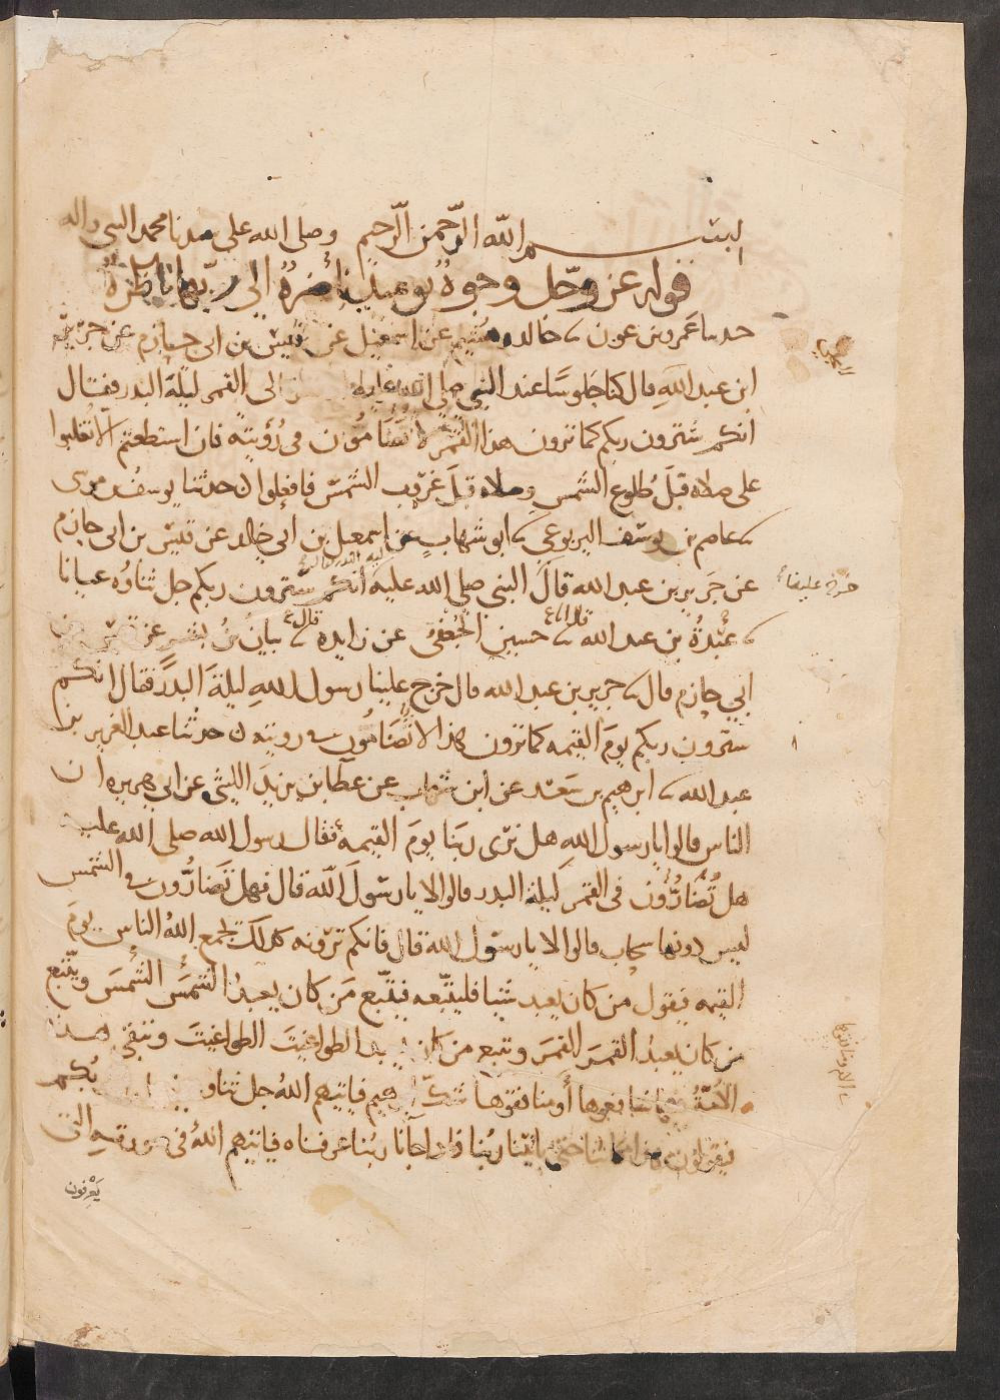 بسم الله الرحمن الرحيم وصلى الله على سيدنا محمد النبي واله
قوله عز وجل وجوه يومئذ ناضرة الى ربها ناظرة
حدثنا عمرو بن عون خالد وهشيم عن اسمعيل عن قيس بن ابي حازم عن جرير
ابن عبد الله قال كنا جلوسا عند النبي صلى الله عليه الى القمر ليلة البدر فقال
انكم سترون ربكم كما ترون هذا القمر لا تضامون في رؤيته فان استطعتم الا تغلبوا
على صلاه قبل طلوع الشمس وصلاه قبل غروب الشمس فافعلوا حدثنا يوسف بن موسى
عاصم بن يوسف اليربوعي ابو شهاب عن اسمعيل بن ابي خالد عن قيس بن ابي حازم
عن جرير بن عبد الله قال النبي صلى الله عليه انكم سترون ربكم جل ثناؤه عيانا
خرج علينا
عبدة بن عبد الله حسين الجعفي عن زايده بيان بن بشر عن قيس بن
ابي حازم قال جرير بن عبد الله قال خرج علينا رسول الله ليلة البدر فقال انكم
سترون ربكم يوم القيمه كما ترون هذا لا تضامون في رويته حدثنا عبد العزيز بن
عبد الله ابرهيم بن سعد عن ابن شهاب عن عطا بن يزيد الليثي عن ابي هريره ان
الناس قالوا يا رسول الله هل نرى ربنا يوم القيمه فقال رسول الله صلى الله عليه
هل تضارون في القمر ليلة البدر قالوا لا يا رسول الله قال فهل تضارون في الشمس
ليس دونها سحاب قالوا لا يا رسول الله قال فانكم ترونه كذلك يجمع الله الناس يوم
القيمه فيقول من كان يعبد شيا فليتبعه فيتبع من كان يعبد الشمس الشمس ويتبع
من كان يعبد القمر القمر ويتبع من كان يعبد الطواغيت الطواغيت وتبقى هذه
الامة فيها شافعوها أو منافقوها شك ابرهيم فياتيهم الله جل ثناوه ربكم
فيقولون هذا مكاننا حتى ياتينا ربنا فاذا جانا ربنا عرفناه فياتيهم الله في صورته التي
يعرفون